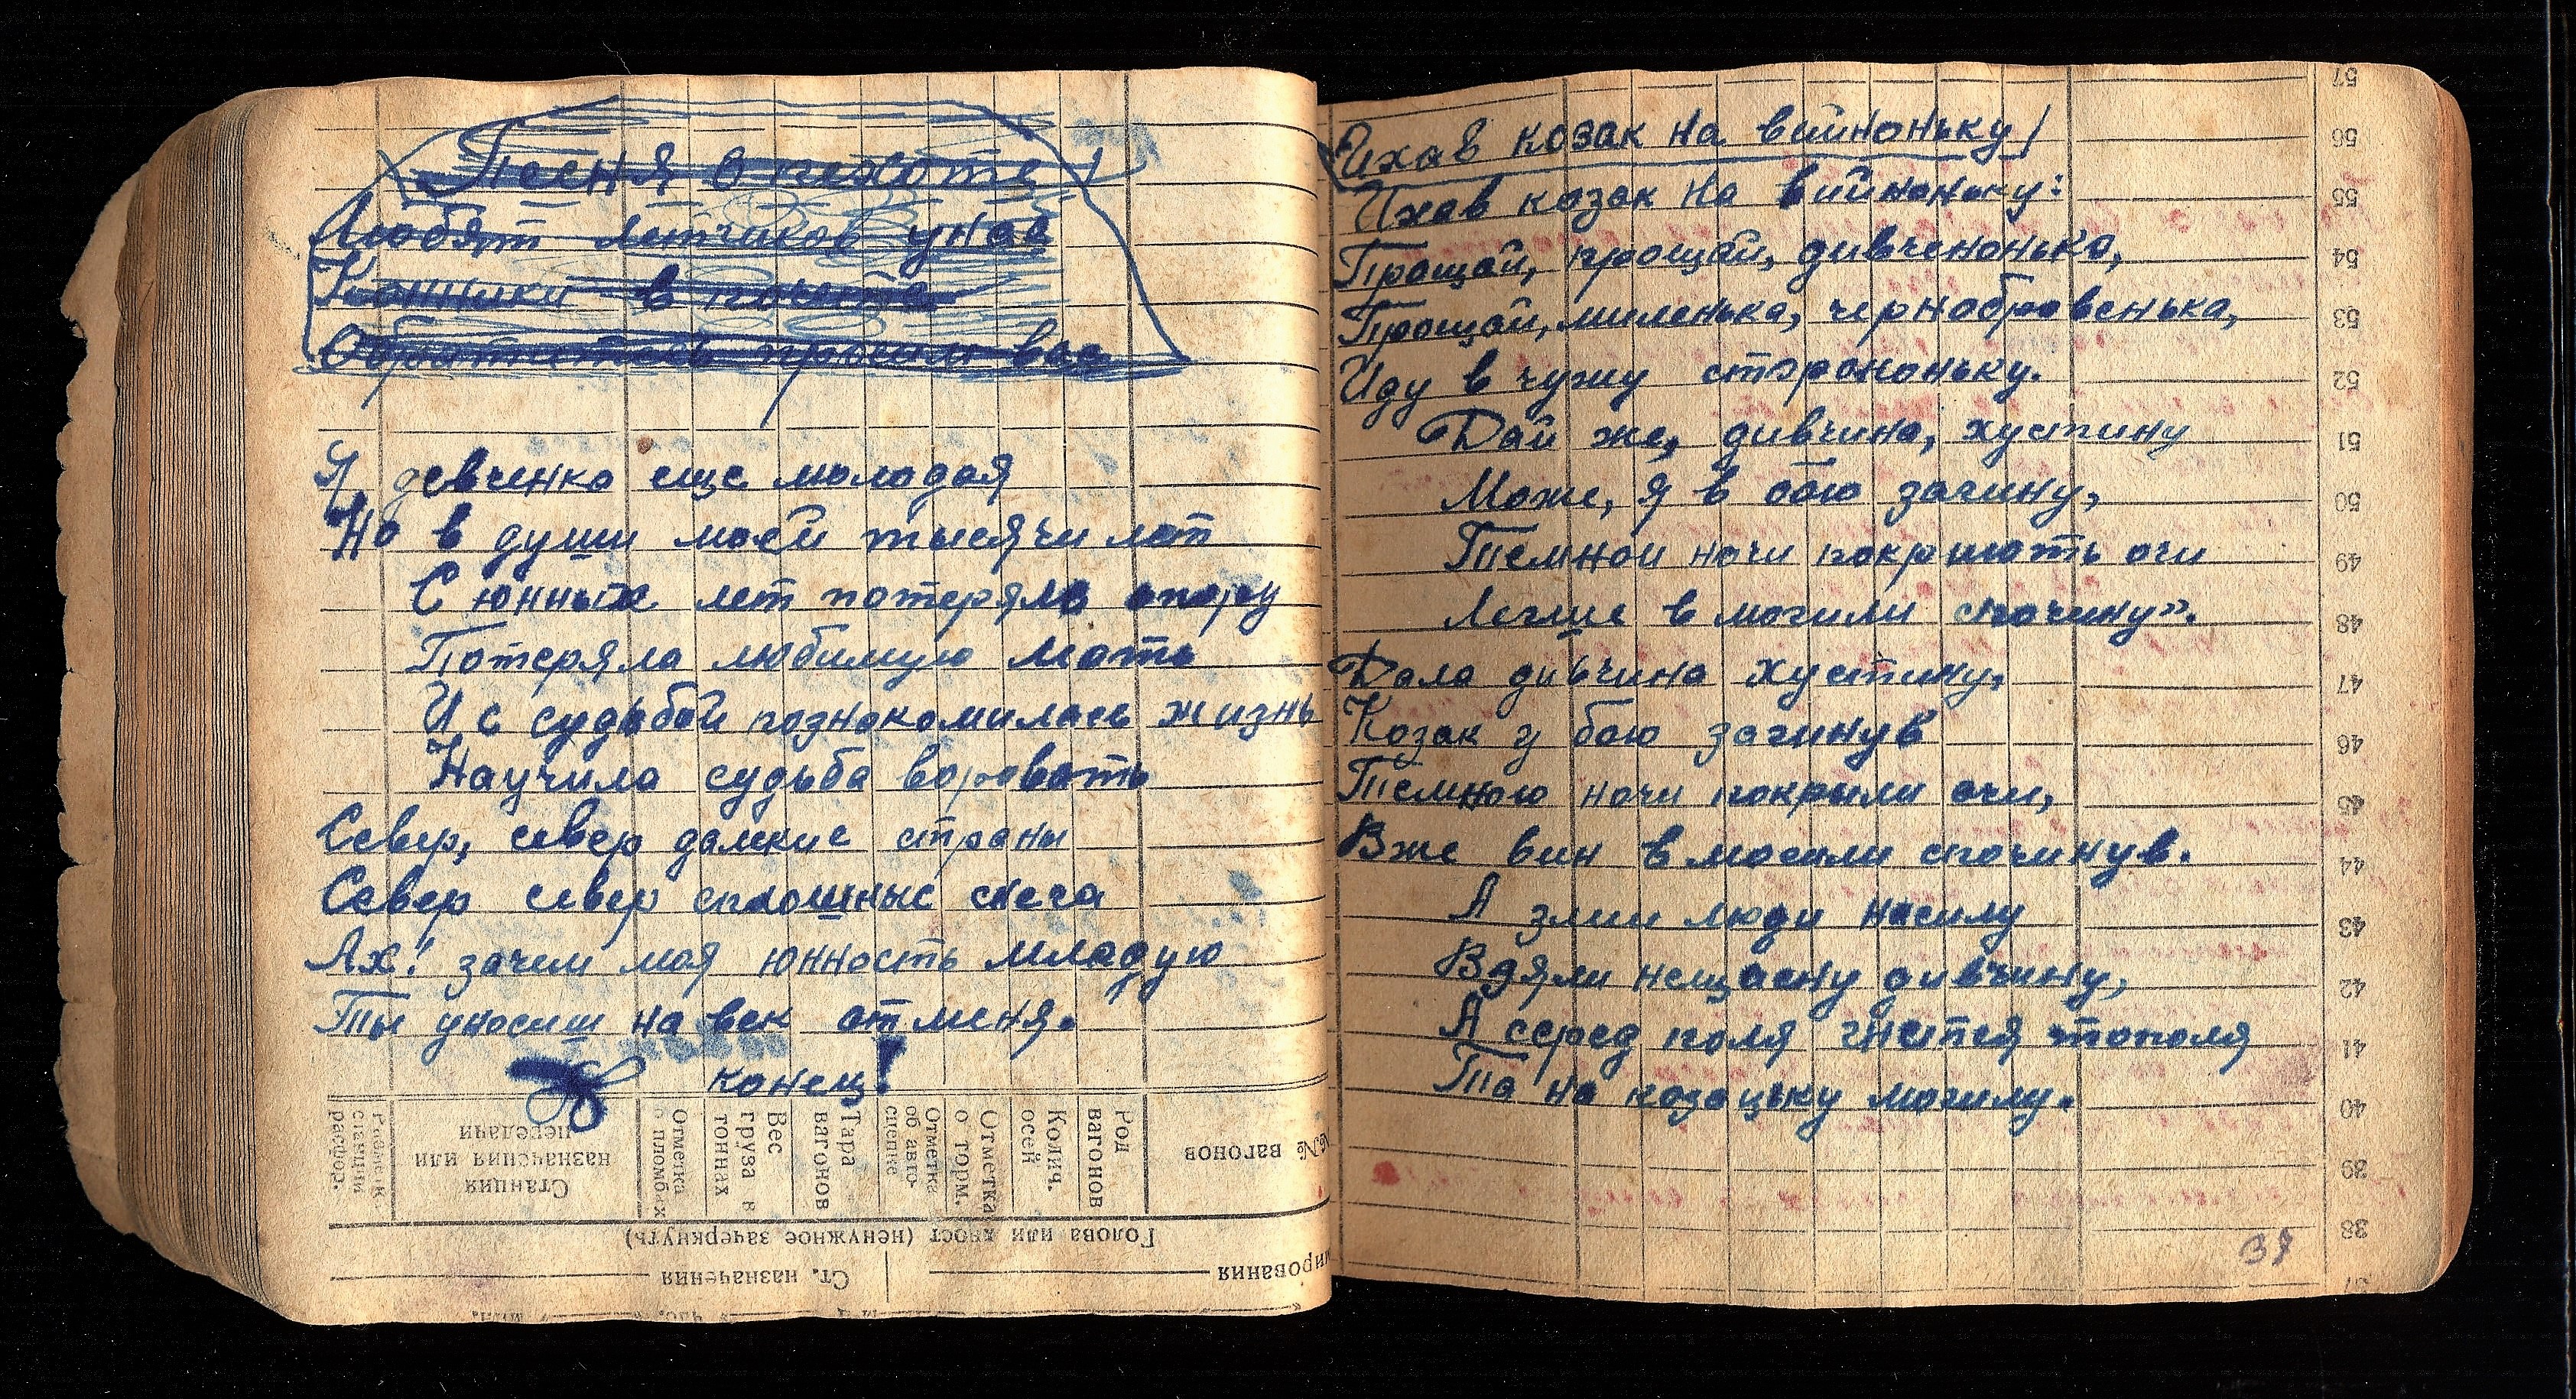 Песня о пехоте
Любят летчиков у нас
Конники в почете
Обратитесь просим вас
Я девченка еще молодая
Но в души моей тысячи лет
С юнных лет потеряла опору
Потеряла любимую мать
И с судьбой познакомилась жизнь
Научила судьба воровать
Север, север далекие страны
Север север сплошные снега
Ах! зачем моя юнность младую
Ты уносиш на век от меня.
конец!
Размен. станции расфор.
Станция назначения или передачи
Отметка о пломбах
Вес груза в тоннах
Тара вагонов
Отметка об авто-сцепке
Отметка о торм.
Колич. осей
Род вагонов
№№ вагонов
Голова или хвост (ненужное зачеркнуть)
Ст. назначения
мирования
Ихав козак на вийноньку
Ихав козак на вийноньку:
Прощай, прощай, дивчененька,
Прощай, миленька, чернобровенька,
Иду в чужу сторононьку.
Дай же, дивчина, хустину
Може, я в бою загину,
Темной ночи покриють очи
Легше в могили спочину».
Дала дивчина хустину,
Козак у бою загинув
Темною ночи покрыли очи,
Вже вин в могили спочинув.
А злии люди насилу
Вдяли нещасну дивчину,
А серед поля гнется тополя
Та на козацьку могилу.
57
56
55
54
53
52
51
50
49
48
47
46
45
44
43
42
41
40
39
38
37